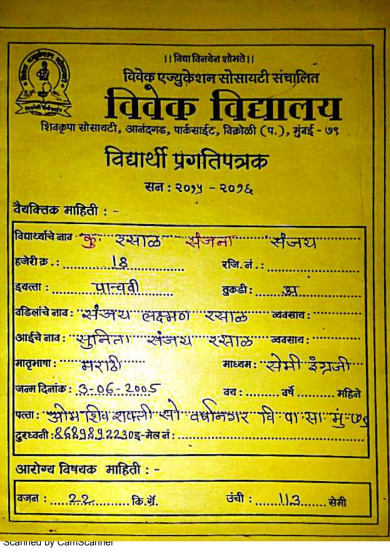 ।। विद्या विनयेन शोभते ।।
विवेक एज्युकेशन सोसायटी संचालित
विवेक विद्यालय
शिवकृपा सोसायटी, आनंदगड, पार्कसाईट, विक्रोळी (प.), मुंबई - ७९
विद्यार्थी प्रगतिपत्रक
सन : २०१५ - २०१६
वैयक्तिक माहिती : -
विद्यार्थ्याचे नाव कु. रसाळ संजना संजय
हजेरी क्र. : 18 रजि. नं. :
इयत्ता : पाचवी तुकडी : अ
वडिलांचे नाव : संजय लक्ष्मण रसाळ व्यवसाय :
आईचे नाव : सुनिता संजय रसाळ व्यवसाय :
मातृभाषा : मराठी माध्यम : सेमी इंग्रजी
जन्म दिनांक : 3-06-2005 वय : वर्षे महिने
पत्ता : ओम शिव शक्ती सो वर्षानगर वि पा सा मुं-७९
दुरध्वनी : 8689892230 इ-मेल नं :
आरोग्य विषयक माहिती : -
वजन : 22 कि.ग्रॅ. उंची : 113 सेमी
Scanned by CamScanner